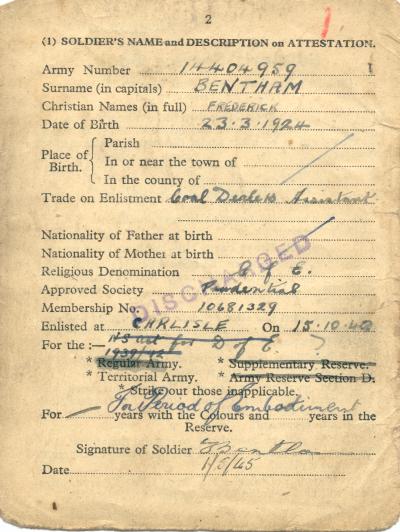 2
(1) SOLDIER'S NAME and DESCRIPTION on ATTESTATION.
Army Number 14404959
Surname (in capitals) BENTHAM
Christian Names (in full) FREDERICK
Date of Birth 23.3.1924
Place of Birth. Parish
In or near the town of
In the county of
Trade on Enlistment Coal Dealers Assistant
Nationality of Father at birth
Nationality of Mother at birth
DISCHARGED
Religious Denomination C of E.
Approved Society Prudential
Membership No. 10681329
Enlisted at CARLISLE On 15.10.42
For the :— N S Act for D of E.
1939/42
* Regular Army. * Supplementary Reserve.
* Territorial Army. * Army Reserve Section D.
* Strike out those inapplicable.
For Period of Embodiment
For years with the Colours and years in the
Reserve.
Signature of Soldier
Date